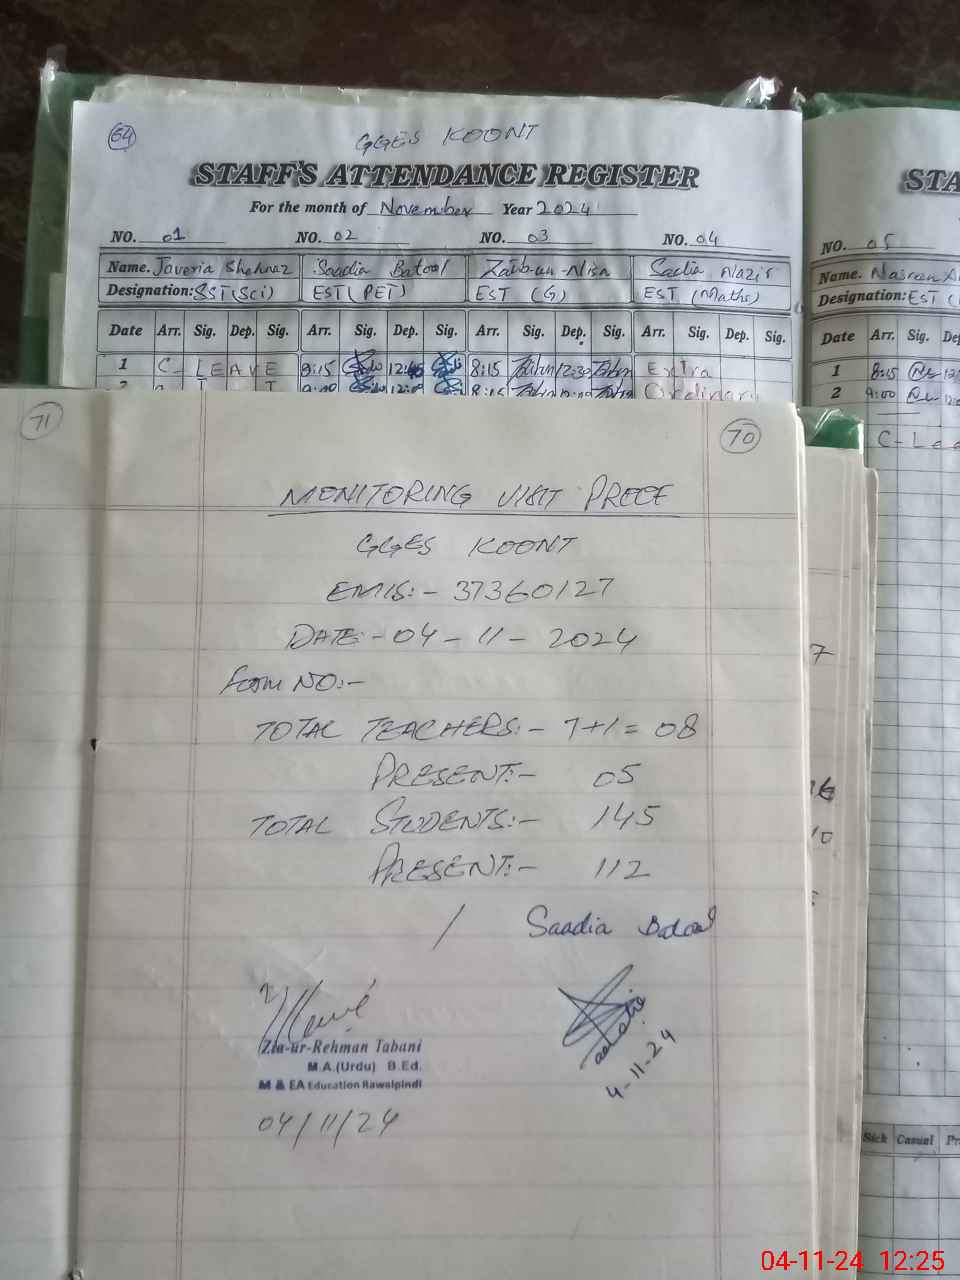 64
GGES KOONT
STAFF'S ATTENDANCE REGISTER
For the month of November Year 2024
NO. 01 NO. 02 NO. 03 NO. 04
Name. Javeria Shehnaz Saadia Batool Zaib-un-Nisa Sadia Nazir
Designation: SST(Sci) EST(PET) EST (G) EST (Maths)
Date Arr. Sig. Dep. Sig. Arr. Sig. Dep. Sig. Arr. Sig. Dep. Sig. Arr. Sig. Dep. Sig.
1 C- LEAVE 8:15 8:15 12:30 Extra
2 9:00 12:00 8:15 Ordinary
STA
NO. 05
Name. Nasreen
Designation: EST
Date Arr. Sig. Dep.
1 8:15
2 9:00
C-Lea
71
70
MONITORING VISIT PROOF
GGES KOONT
EMIS:- 37360127
DATE:- 04-11-2024
Form NO:-
TOTAL TEACHERS:- 7+1= 08
PRESENT:- 05
TOTAL STUDENTS:- 145
PRESENT:- 112
/ Saadia Batool
Zia-ur-Rehman Tabani
M.A.(Urdu) B.Ed.
M & EA Education Rawalpindi
04/11/24
4-11-24
7
10
Sick Casual
04-11-24 12:25